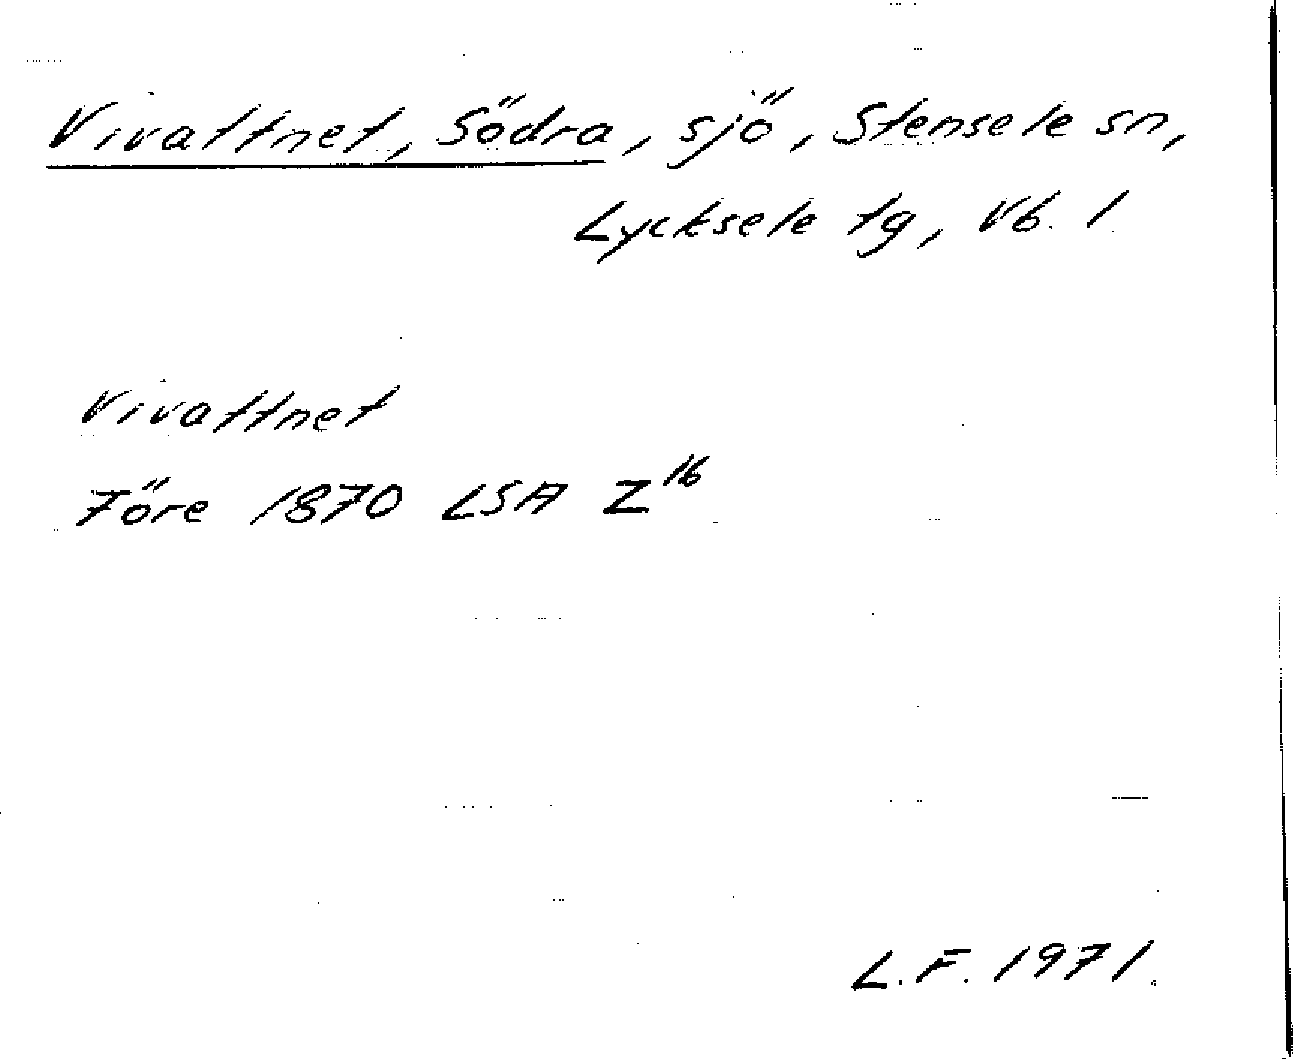 Vivattnet, Södra, sjö, Stensele sn,
Lycksele tg, Vb. l.
Vivattnet
Före 1870 LSA Z16
L.F. 1971.